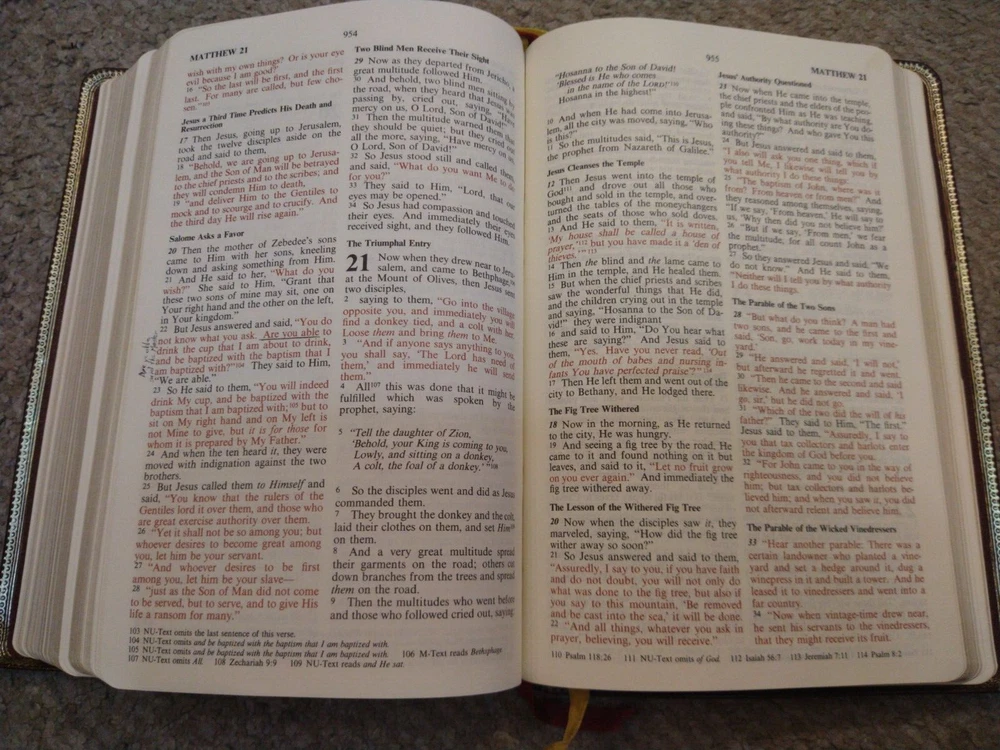 954
MATTHEW 21
wish with my own things? Or is your eye
evil because I am good?"
16 "So the last will be first, and the first
last. For many are called, but few cho-
sen."103
Jesus a Third Time Predicts His Death and
Resurrection
17 Then Jesus, going up to Jerusalem,
took the twelve disciples aside on the
road and said to them,
18 "Behold, we are going up to Jerusa-
lem, and the Son of Man will be betrayed
to the chief priests and to the scribes; and
they will condemn Him to death,
19 "and deliver Him to the Gentiles to
mock and to scourge and to crucify. And
the third day He will rise again."
Salome Asks a Favor
20 Then the mother of Zebedee's sons
came to Him with her sons, kneeling
down and asking something from Him.
21 And He said to her, "What do you
wish?" She said to Him, "Grant that
these two sons of mine may sit, one on
Your right hand and the other on the left,
in Your kingdom."
22 But Jesus answered and said, "You do
not know what you ask. Are you able to
drink the cup that I am about to drink,
and be baptized with the baptism that I
am baptized with?"104 They said to Him,
"We are able."
23 So He said to them, "You will indeed
drink My cup, and be baptized with the
baptism that I am baptized with;105 but to
sit on My right hand and on My left is
not Mine to give, but it is for those for
whom it is prepared by My Father."
24 And when the ten heard it, they were
moved with indignation against the two
brothers.
25 But Jesus called them to Himself and
said, "You know that the rulers of the
Gentiles lord it over them, and those who
are great exercise authority over them.
26 "Yet it shall not be so among you; but
whoever desires to become great among
you, let him be your servant.
27 "And whoever desires to be first
among you, let him be your slave—
28 "just as the Son of Man did not come
to be served, but to serve, and to give His
life a ransom for many."
Two Blind Men Receive Their Sight
29 Now as they departed from Jericho, a
great multitude followed Him.
30 And behold, two blind men sitting by
the road, when they heard that Jesus was
passing by, cried out, saying, "Have
mercy on us, O Lord, Son of David!"
31 Then the multitude warned them that
they should be quiet; but they cried out
all the more, saying, "Have mercy on us,
O Lord, Son of David!"
32 So Jesus stood still and called them,
and said, "What do you want Me to do
for you?"
33 They said to Him, "Lord, that our
eyes may be opened."
34 So Jesus had compassion and touched
their eyes. And immediately their eyes
received sight, and they followed Him.
The Triumphal Entry
21 Now when they drew near to Jeru-
salem, and came to Bethphage,106
at the Mount of Olives, then Jesus sent
two disciples,
2 saying to them, "Go into the village
opposite you, and immediately you will
find a donkey tied, and a colt with her.
Loose them and bring them to Me.
3 "And if anyone says anything to you,
you shall say, 'The Lord has need of
them,' and immediately he will send
them."
4 All107 this was done that it might be
fulfilled which was spoken by the
prophet, saying:
5 "Tell the daughter of Zion,
'Behold, your King is coming to you,
Lowly, and sitting on a donkey,
A colt, the foal of a donkey.' "108
6 So the disciples went and did as Jesus
commanded them.
7 They brought the donkey and the colt,
laid their clothes on them, and set Him109
on them.
8 And a very great multitude spread
their garments on the road; others cut
down branches from the trees and spread
them on the road.
9 Then the multitudes who went before
and those who followed cried out, saying:
103 NU-Text omits the last sentence of this verse.
104 NU-Text omits and be baptized with the baptism that I am baptized with.
105 NU-Text omits and be baptized with the baptism that I am baptized with. 106 M-Text reads Bethsphage.
107 NU-Text omits All. 108 Zechariah 9:9 109 NU-Text reads and He sat.
955
MATTHEW 21
"Hosanna to the Son of David!
'Blessed is He who comes
in the name of the LORD!'110
Hosanna in the highest!"
10 And when He had come into Jerusa-
lem, all the city was moved, saying, "Who
is this?"
11 So the multitudes said, "This is Jesus,
the prophet from Nazareth of Galilee."
Jesus Cleanses the Temple
12 Then Jesus went into the temple of
God111 and drove out all those who
bought and sold in the temple, and over-
turned the tables of the moneychangers
and the seats of those who sold doves.
13 And He said to them, "It is written,
'My house shall be called a house of
prayer,'112 but you have made it a 'den of
thieves.' "113
14 Then the blind and the lame came to
Him in the temple, and He healed them.
15 But when the chief priests and scribes
saw the wonderful things that He did,
and the children crying out in the temple
and saying, "Hosanna to the Son of Da-
vid!" they were indignant
16 and said to Him, "Do You hear what
these are saying?" And Jesus said to
them, "Yes. Have you never read, 'Out
of the mouth of babes and nursing in-
fants You have perfected praise'?"114
17 Then He left them and went out of the
city to Bethany, and He lodged there.
The Fig Tree Withered
18 Now in the morning, as He returned
to the city, He was hungry.
19 And seeing a fig tree by the road, He
came to it and found nothing on it but
leaves, and said to it, "Let no fruit grow
on you ever again." And immediately the
fig tree withered away.
The Lesson of the Withered Fig Tree
20 Now when the disciples saw it, they
marveled, saying, "How did the fig tree
wither away so soon?"
21 So Jesus answered and said to them,
"Assuredly, I say to you, if you have faith
and do not doubt, you will not only do
what was done to the fig tree, but also if
you say to this mountain, 'Be removed
and be cast into the sea,' it will be done.
22 "And all things, whatever you ask in
prayer, believing, you will receive."
Jesus' Authority Questioned
23 Now when He came into the temple,
the chief priests and the elders of the peo-
ple confronted Him as He was teaching,
and said, "By what authority are You do-
ing these things? And who gave You this
authority?"
24 But Jesus answered and said to them,
"I also will ask you one thing, which if
you tell Me, I likewise will tell you by
what authority I do these things:
25 "The baptism of John, where was it
from? From heaven or from men?" And
they reasoned among themselves, saying,
"If we say, 'From heaven,' He will say to
us, 'Why then did you not believe him?'
26 "But if we say, 'From men,' we fear
the multitude, for all count John as a
prophet."
27 So they answered Jesus and said, "We
do not know." And He said to them,
"Neither will I tell you by what authority
I do these things.
The Parable of the Two Sons
28 "But what do you think? A man had
two sons, and he came to the first and
said, 'Son, go, work today in my vine-
yard.'
29 "He answered and said, 'I will not,'
but afterward he regretted it and went.
30 "Then he came to the second and said
likewise. And he answered and said, 'I
go, sir,' but he did not go.
31 "Which of the two did the will of his
father?" They said to Him, "The first."
Jesus said to them, "Assuredly, I say to
you that tax collectors and harlots enter
the kingdom of God before you.
32 "For John came to you in the way of
righteousness, and you did not believe
him; but tax collectors and harlots be-
lieved him; and when you saw it, you did
not afterward relent and believe him.
The Parable of the Wicked Vinedressers
33 "Hear another parable: There was a
certain landowner who planted a vine-
yard and set a hedge around it, dug a
winepress in it and built a tower. And he
leased it to vinedressers and went into a
far country.
34 "Now when vintage-time drew near,
he sent his servants to the vinedressers,
that they might receive its fruit.
110 Psalm 118:26 111 NU-Text omits of God. 112 Isaiah 56:7 113 Jeremiah 7:11 114 Psalm 8:2